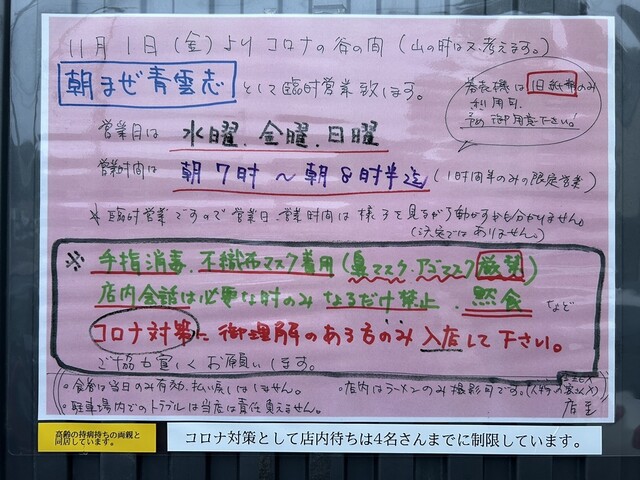 11月1日(金)よりコロナの谷の間(山の時はス、考えます。)
朝まぜ青雲志として臨時営業致します。
券売機は旧紙幣のみ
利用可
予め御用意下さい!
営業日は 水曜、金曜、日曜
営業時間は 朝7時〜朝8時半迄(1時間半のみの限定営業)
臨時営業ですので営業日、営業時間は様子を見るが変動がするかも分かりません。
(決定ではありません。)
※手指消毒、不織布マスク着用(鼻マスク、アゴマスク厳禁)
店内会話は必要な時のみ なるだけ禁止、黙食 など
コロナ対策に御理解のある方のみ入店して下さい。
ご協力宜しくお願いします。
・食券は当日のみ有効、払い戻しはしません。
・店内はラーメンのみ撮影可です。
・駐車場内でのトラブルは当店は責任負えません。
店主
高齢の持病持ちの両親と
同居しています。
コロナ対策として店内待ちは4名さんまでに制限しています。